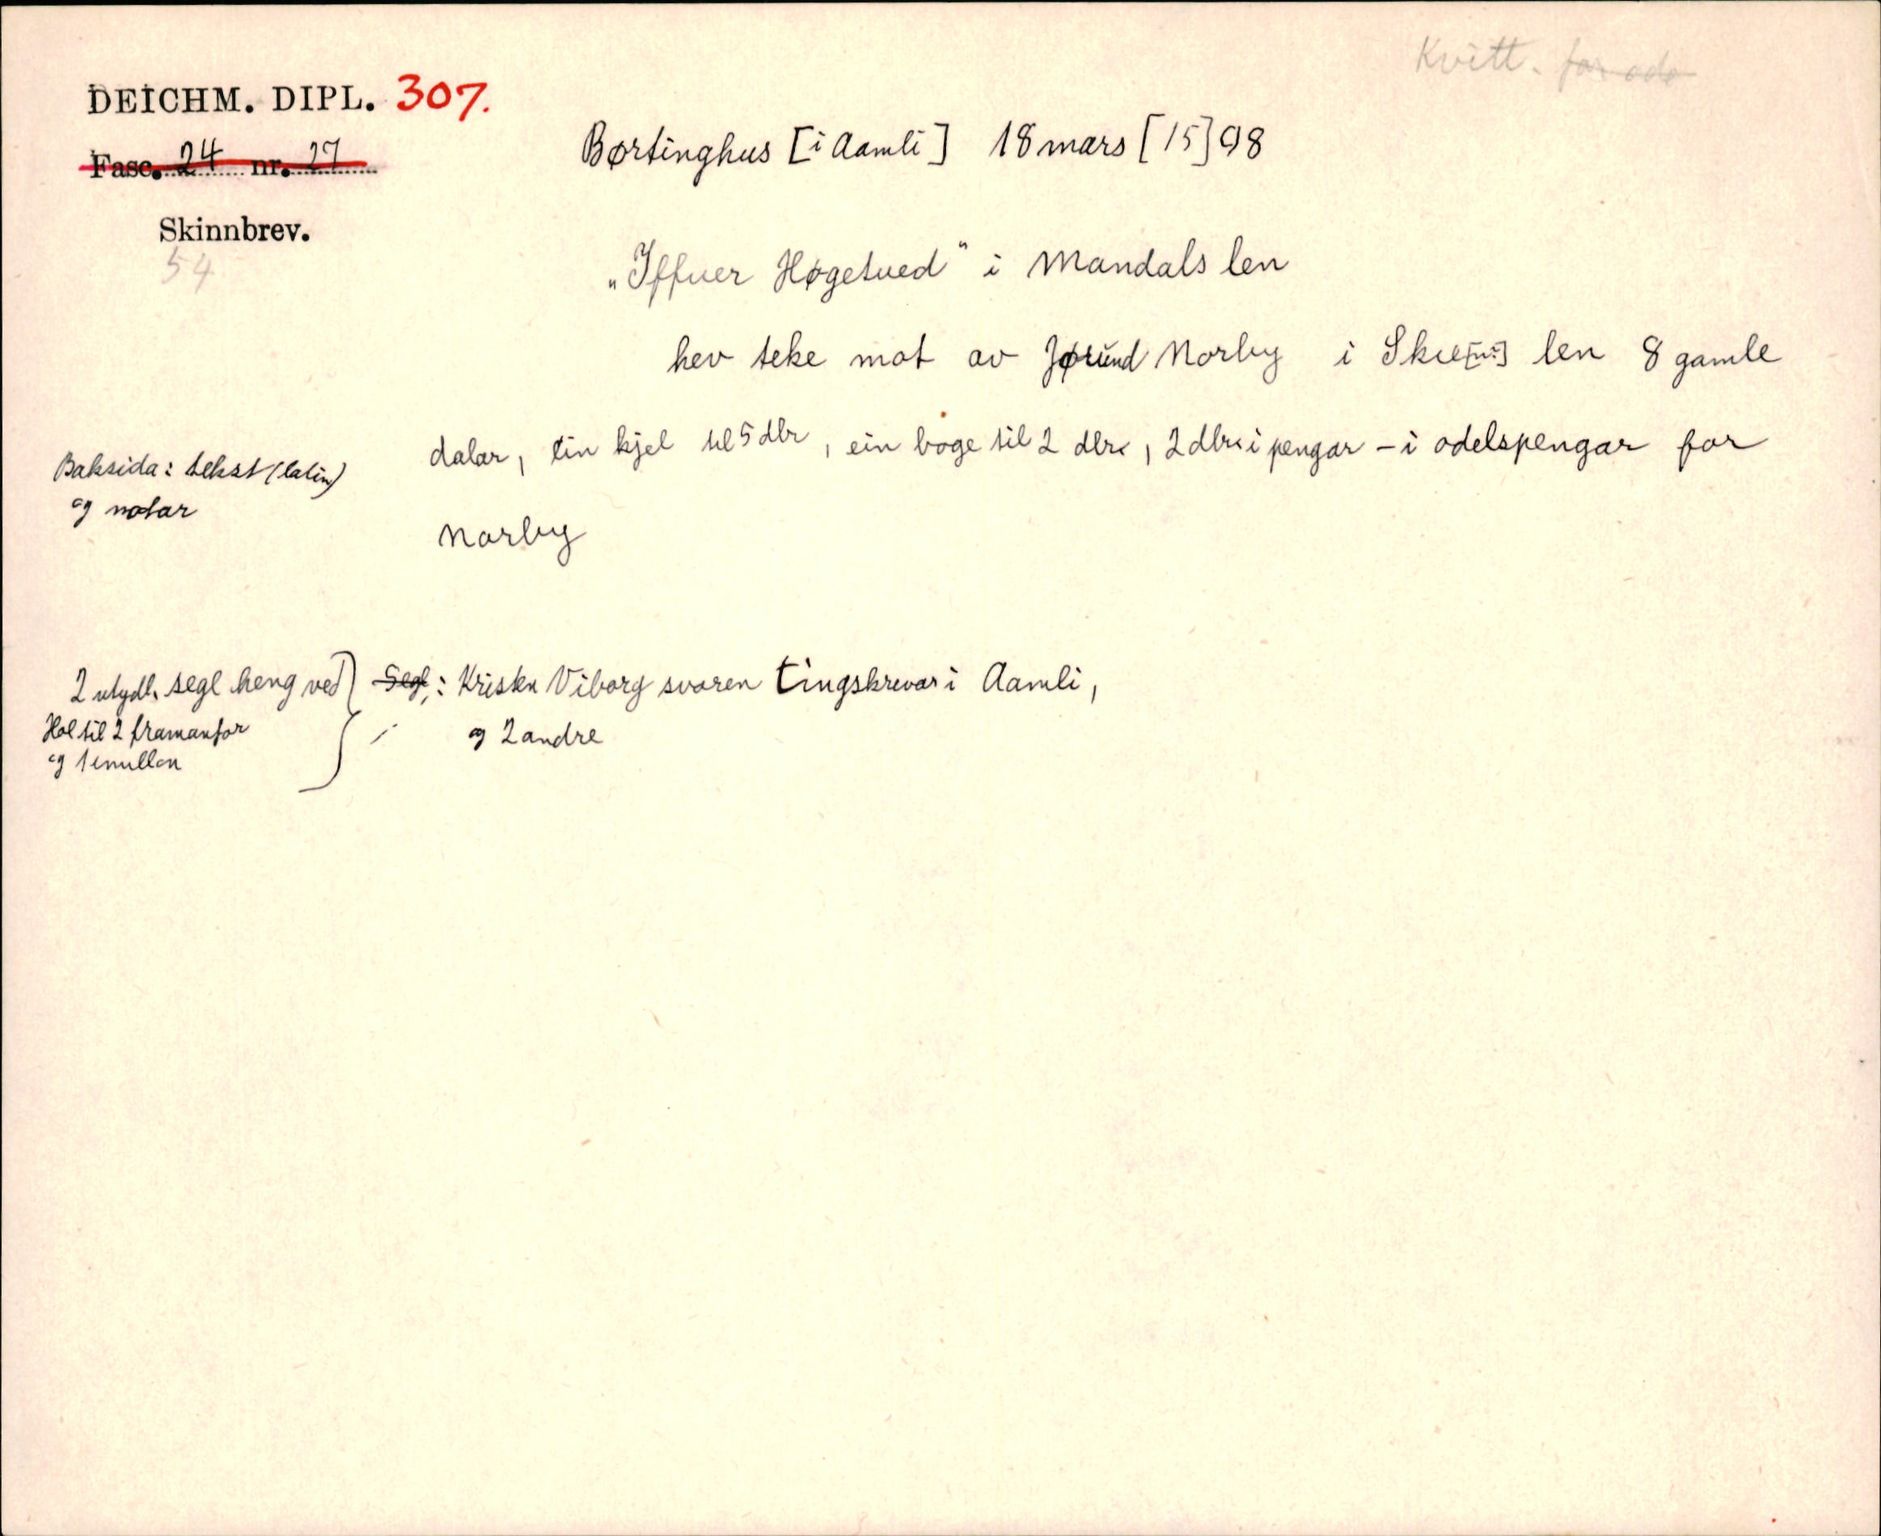 Kvitt. for odo
DEICHM. DIPL. 307.
Fasc. 24 nr. 27
Børtinghus [i Aamli] 18 mars [15]98
Skinnbrev.
54
„Iffuer Høgetued" i Mandals len
hev teke mot av Jørund Norby i Skie[ns] len 8 gamle
dalar, ein kjel til 5 dlr, ein boge til 2 dlr, 2 dlr i pengar – i odelspengar for
Norby
Baksida: tekst (latin)
og notar
2 utydl. segl heng ved
Hol til 2 framanfor
og 1 imillon
Segl: Kristen Viborg svoren tingskrivar i Aamli,
og 2 andre